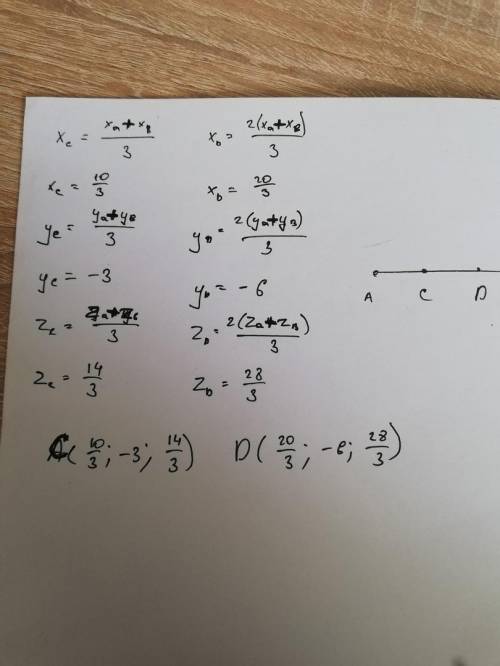 x_c = (x_a + x_B)/3   x_D = 2(x_a + x_B)/3
x_c = 10/3   x_D = 20/3
y_c = (y_a + y_B)/3   y_D = 2(y_a + y_B)/3
y_c = -3   y_D = -6
z_c = (z_a + z_B)/3   z_D = 2(z_a + z_B)/3
z_c = 14/3   z_D = 28/3
C(10/3; -3; 14/3)   D(20/3; -6; 28/3)
A C D